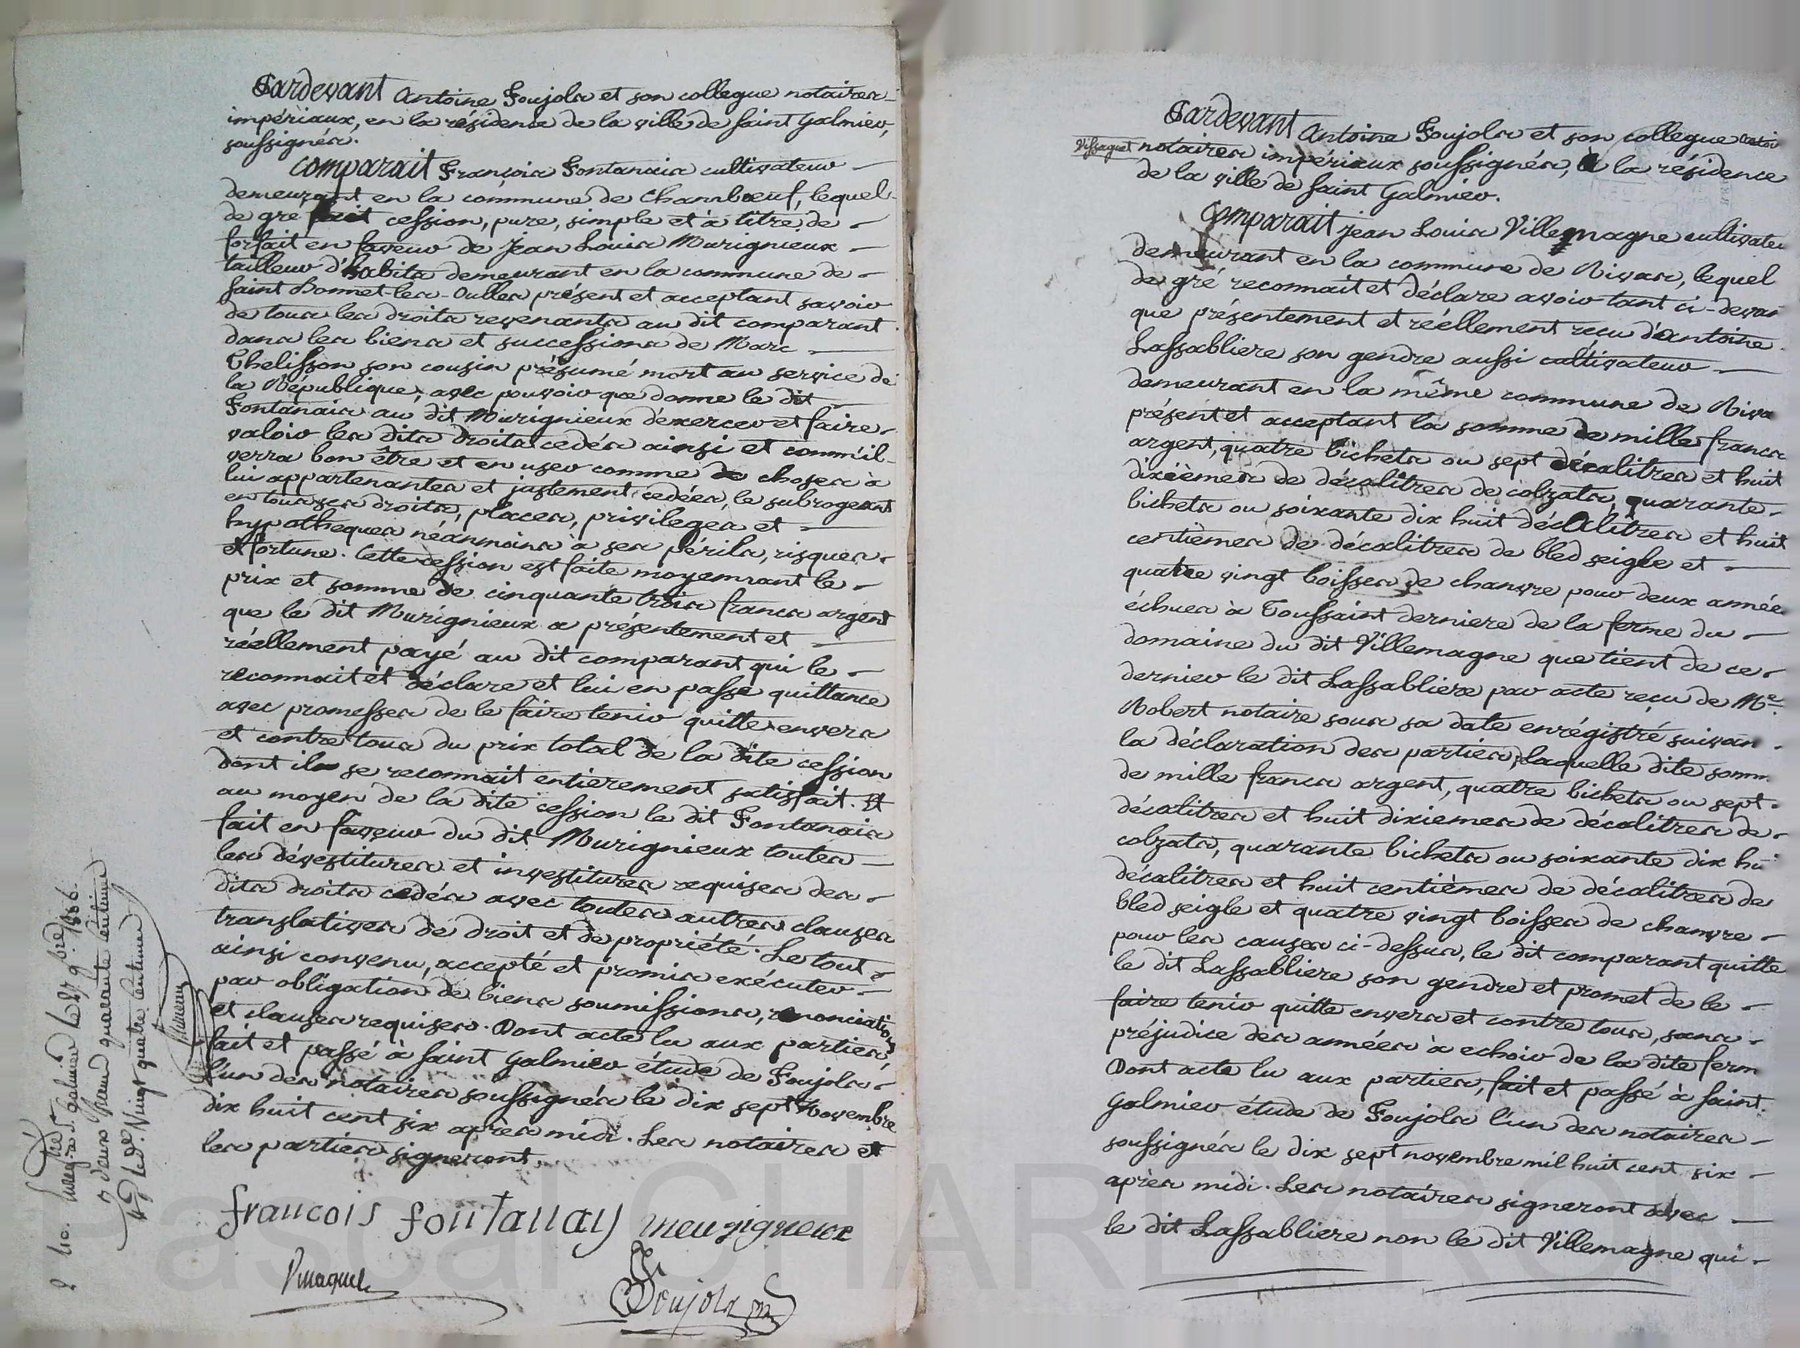 Pardevant Antoine Poujola et son collegue notaires
impériaux, en la résidence de la ville de saint Galmier,
soussignés.
Comparait François Fontanais cultivateur
demeurant en la commune de Chambœuf, lequel
de gré fait cession, pure, simple et à titre de
forfait en faveur de Jean Louis Murignieux
tailleur d'habits demeurant en la commune de
saint Bonnet-les-Oulles présent et acceptant savoir
de tous les droits revenants au dit comparant
dans les biens et successions de Marc
Thelisson son cousin présumé mort au service de
la République, avec pouvoir que donne le dit
Fontanais au dit Murignieux d'exercer et faire
valoir les dits droits cédés ainsi et comm'il
verra bon être et en user comme de choses à
lui appartenantes et justement cedées, le subrogeant
en tous ses droits, places, privileges et
hypotheques néanmoins à ses périls, risques
et fortune. Cette cession est faite moyennant le
prix et somme de cinquante trois francs argent
que le dit Murignieux a présentement et
réellement payé au dit comparant qui le
reconnait et déclare et lui en passe quittance
avec promesses de le faire tenir quitte envers
et contre tous du prix total de la dite cession
dont il se reconnait entièrement satisfait. Et
au moyen de la dite cession le dit Fontanais
fait en faveur du dit Murignieux toutes
les dévestitures et investitures requises des
dits droits cedés avec toutes autres clauses
translatives de droit et de propriété. Le tout
ainsi convenu, accepté et promis exécuter
par obligation de biens soumissions, renonciations
et clauses requises. Dont acte lu aux parties
fait et passé à saint Galmier étude de Poujola
l'un des notaires soussignés le dix sept novembre
dix huit cent six après midi. Les notaires et
les parties signeront.
francois fontanay meurigneux
Poujola
à St. galmier le 27 9bre 1806.
deux francs quarante centimes
Vingt quatre centimes
Pardevant Antoine Poujola et son collegue
Vissaguet notaires impériaux soussignés, à la résidence
de la ville de saint Galmier.
Comparait jean Louis Villemagne cultivateu
demeurant en la commune de Rivas, lequel
de gré reconnait et déclare avoir tant ci-devan
que présentement et réellement reçu d'antoine
Lassabliere son gendre aussi cultivateur
demeurant en la même commune de Riva
présent et acceptant la somme de mille francs
argent, quatre bichets ou sept décalitres et huit
dixièmes de décalitres de colzats, quarante
bichets ou soixante dix huit décalitres et huit
centièmes de décalitres de bled seigle et
quatre vingt boisses de chanvre pour deux année
échues à Toussaint derniere de la ferme du
domaine du dit Villemagne que tient de ce
dernier le dit Lassabliere par acte reçu de Me.
Robert notaire sous sa date enrégistré suivan
la déclaration des parties, laquelle dite somm
de mille francs argent, quatre bichets ou sept
décalitres et huit dixiemes de décalitres de
colzats, quarante bichets ou soixante dix hui
décalitres et huit centièmes de décalitres de
bled seigle et quatre vingt boisses de chanvre
pour les causes ci-dessus, le dit comparant quitte
le dit Lassabliere son gendre et promet de le
faire tenir quitte envers et contre tous, sans
préjudice des années à echoir de la dite ferm
Dont acte lu aux parties, fait et passé à saint
Galmier étude de Poujola l'un des notaires
soussignés le dix sept novembre mil huit cent six
après midi. Les notaires signeront avec
le dit Lassabliere non le dit Villemagne qui
Pascal CHAREYRON